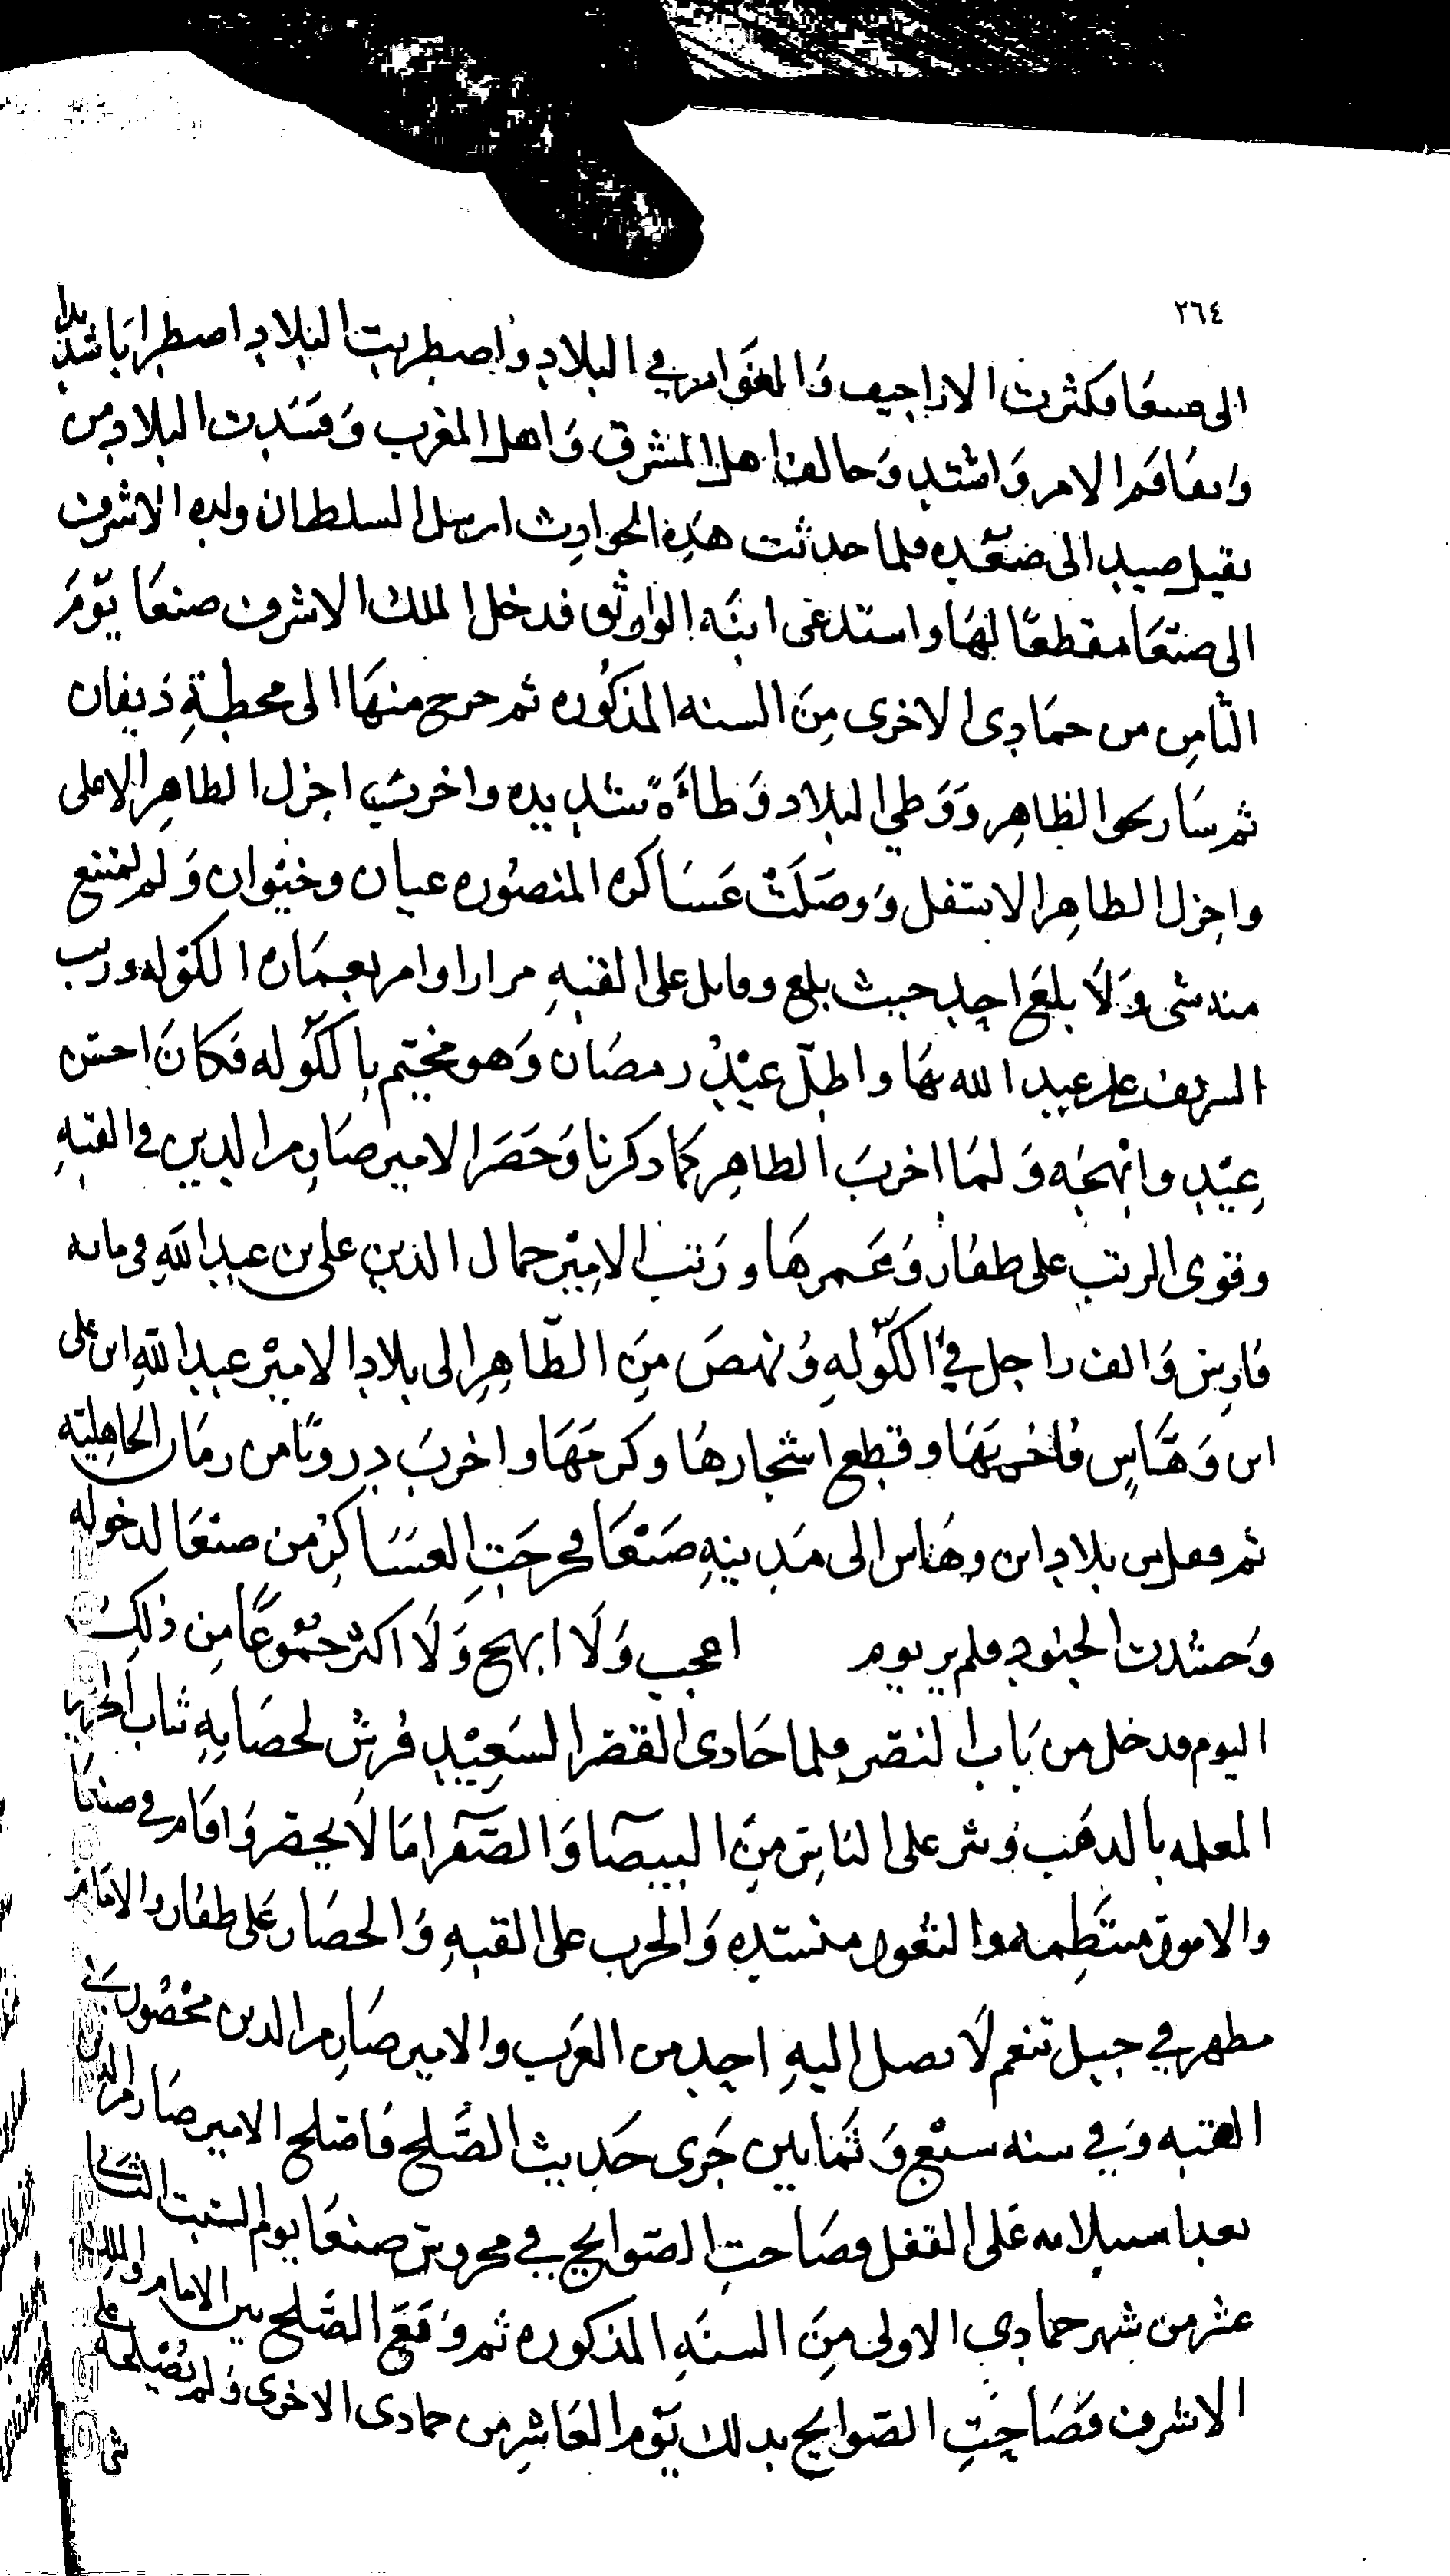 ٢٦٤
الى صنعا فكثرت الاراجيف والمغوار في البلاد واضطربت البلاد اضطرابا شديدا
وتفاقم الامر واشتد وحالف اهل المشرق واهل المغرب وفسدت البلاد من
نقيل صيد الى صعده فلما حدثت هذه الحوادث ارسل السلطان ولده الاشرف
الى صنعا مقطعا لها واستدعى ابنه الواثق فدخل الملك الاشرف صنعا يوم
الثامن من جمادى الاخرى من السنه المذكوره ثم خرج منها الى محطة ذيفان
ثم سار نحو الظاهر ووطي البلاد وطأة شديده واخرب اجزل الظاهر الاعلى
واجزل الظاهر الاسفل ووصلت عساكره المنصوره عيان وخيوان ولم يمتنع
منه شى ولا بلغ احد حيث بلغ وقاتل على القبه مرارا وامر بعماره الكوله ورتب
الشريف على عبد الله بها واطل عيد رمضان وهو مخيم بالكوله فكان احسن
عيد وابهجه ولما اخرب الظاهر كما ذكرنا وحصر الامير صارم الدين في القبه
وقوى الرتب على ظفار وعمرها ورتب الامير جمال الدين على بن عبد الله في مايه
فارس والف راجل في الكوله ونهض من الظاهر الى بلاد الامير عبد الله ابن على
ابن وهاس فاخربها وقطع اشجارها وكرمها واخرب دروبا من زمان الجاهليه
ثم قفل من بلاد ابن وهاس الى مدينه صنعا فخرجت العساكر من صنعا لدخوله
وحشدت الجنود فلم ير يوم اعجب ولا ابهج ولا اكثر جموعا من ذلك
اليوم فدخل من باب النصر فلما حاذى القصر السعيد فرش لحصانه ثياب الحرير
المعلمه بالذهب ونثر على الناس من البيضا والصفرا ما لا يحصر واقام في صنعا
والامور منتظمه والثغور منسده والحرب على القبه والحصار على ظفار والامام
مطهر في جبل تنعم لا يصل اليه احد من العرب والامير صارم الدين محصور في
القبه وفي سنه سبع وثمانين جرى حديث الصلح فاصلح الامير صارم الدين
بعد استيلائه على القفل وصاحت الصوايح في محروس صنعا يوم السبت الثانى
عشر من شهر جمادى الاولى من السنه المذكوره ثم وقع الصلح بين الامام والملك
الاشرف وصاحت الصوايح بذلك يوم العاشر من جمادى الاخرى ولم يصلحه على
شى